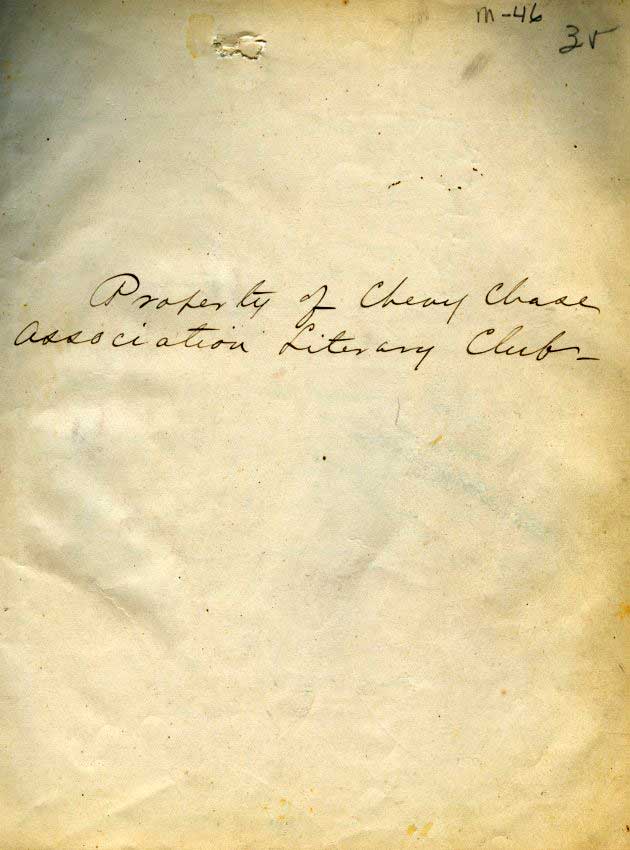 M-46
Property of Chevy Chase
Association Literary Club